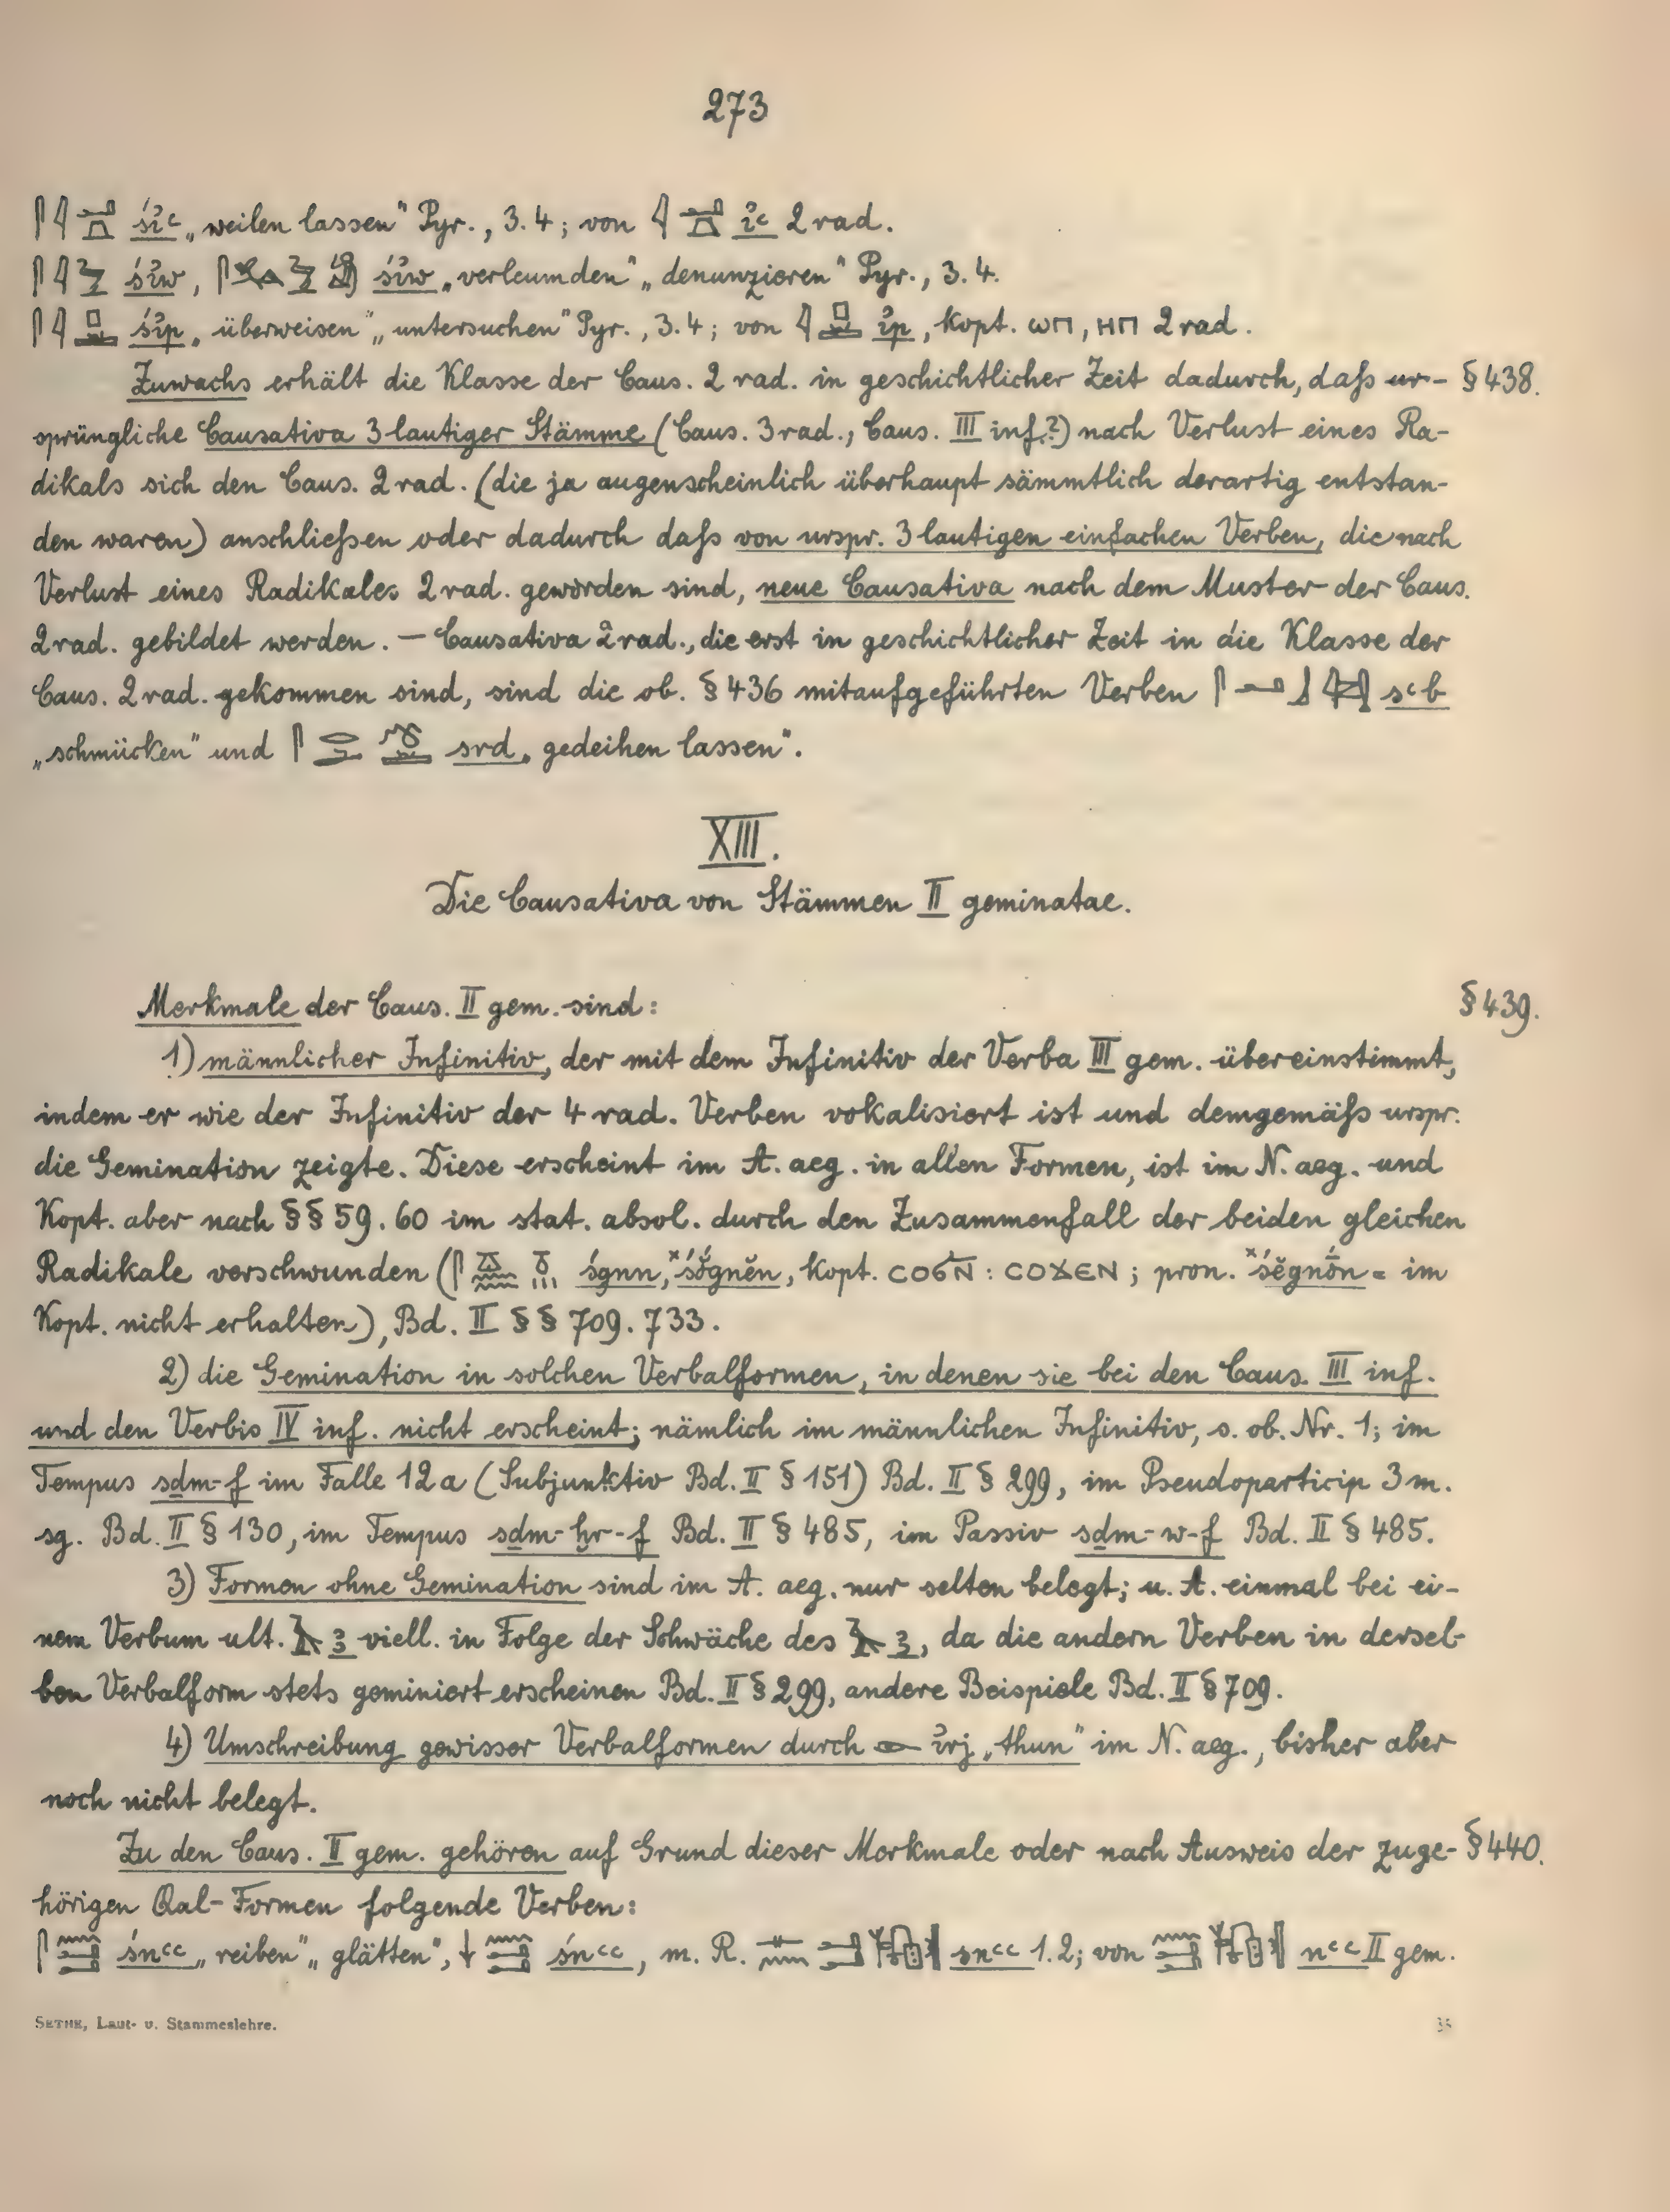 273
śiꜥ „weilen lassen“ Pyr., 3.4; von iꜥ 2 rad.
śiw, śiw „verleumden“ „denunzieren“ Pyr., 3.4.
śip „überweisen“ „untersuchen“ Pyr., 3.4; von ip, kopt. ⲱⲡ, ⲏⲡ 2 rad.
Zuwachs erhält die Klasse der Caus. 2 rad. in geschichtlicher Zeit dadurch, daß ur- § 438.
sprüngliche Causativa 3 lautiger Stämme (Caus. 3 rad., Caus. III inf.?) nach Verlust eines Ra-
dikals sich den Caus. 2 rad. (die ja augenscheinlich überhaupt sämmtlich derartig entstan-
den waren) anschließen oder dadurch daß von urspr. 3 lautigen einfachen Verben, die nach
Verlust eines Radikales 2 rad. geworden sind, neue Causativa nach dem Muster der Caus.
2 rad. gebildet werden. — Causativa 2 rad., die erst in geschichtlicher Zeit in die Klasse der
Caus. 2 rad. gekommen sind, sind die ob. § 436 mitaufgeführten Verben sꜥb
„schmücken“ und srd „gedeihen lassen“.
XIII.
Die Causativa von Stämmen II geminatae.
Merkmale der Caus. II gem. sind: § 439.
1) männlicher Infinitiv, der mit dem Infinitiv der Verba III gem. übereinstimmt,
indem er wie der Infinitiv der 4 rad. Verben vokalisiert ist und demgemäß urspr.
die Gemination zeigte. Diese erscheint im A. aeg. in allen Formen, ist im N. aeg. und
Kopt. aber nach §§ 59. 60 im stat. absol. durch den Zusammenfall der beiden gleichen
Radikale verschwunden ( śgnn, ˣśŏ́gnĕn, kopt. ⲥⲟϭⲛ̄ : ⲥⲟϫⲉⲛ; pron. ˣśĕgnṓn = im
Kopt. nicht erhalten), Bd. II §§ 709. 733.
2) die Gemination in solchen Verbalformen, in denen sie bei den Caus. III inf.
und den Verbis IV inf. nicht erscheint; nämlich im männlichen Infinitiv, s. ob. Nr. 1; im
Tempus sḏm-f im Falle 12 a (Subjunktiv Bd. II § 151) Bd. II § 299, im Pseudoparticip 3 m.
sg. Bd. II § 130, im Tempus sḏm-ḫr-f Bd. II § 485, im Passiv sḏm-w-f Bd. II § 485.
3) Formen ohne Gemination sind im A. aeg. nur selten belegt; u. A. einmal bei ei-
nem Verbum ult. ꜣ viell. in Folge der Schwäche des ꜣ, da die andern Verben in dersel-
ben Verbalform stets geminiert erscheinen Bd. II § 299, andere Beispiele Bd. II § 709.
4) Umschreibung gewisser Verbalformen durch irj „thun“ im N. aeg., bisher aber
noch nicht belegt.
Zu den Caus. II gem. gehören auf Grund dieser Merkmale oder nach Ausweis der zuge- § 440.
hörigen Qal-Formen folgende Verben:
śnꜥꜥ „reiben“ „glätten“, śnꜥꜥ, m. R. snꜥꜥ 1.2; von nꜥꜥ II gem.
SETHE, Laut- u. Stammeslehre.